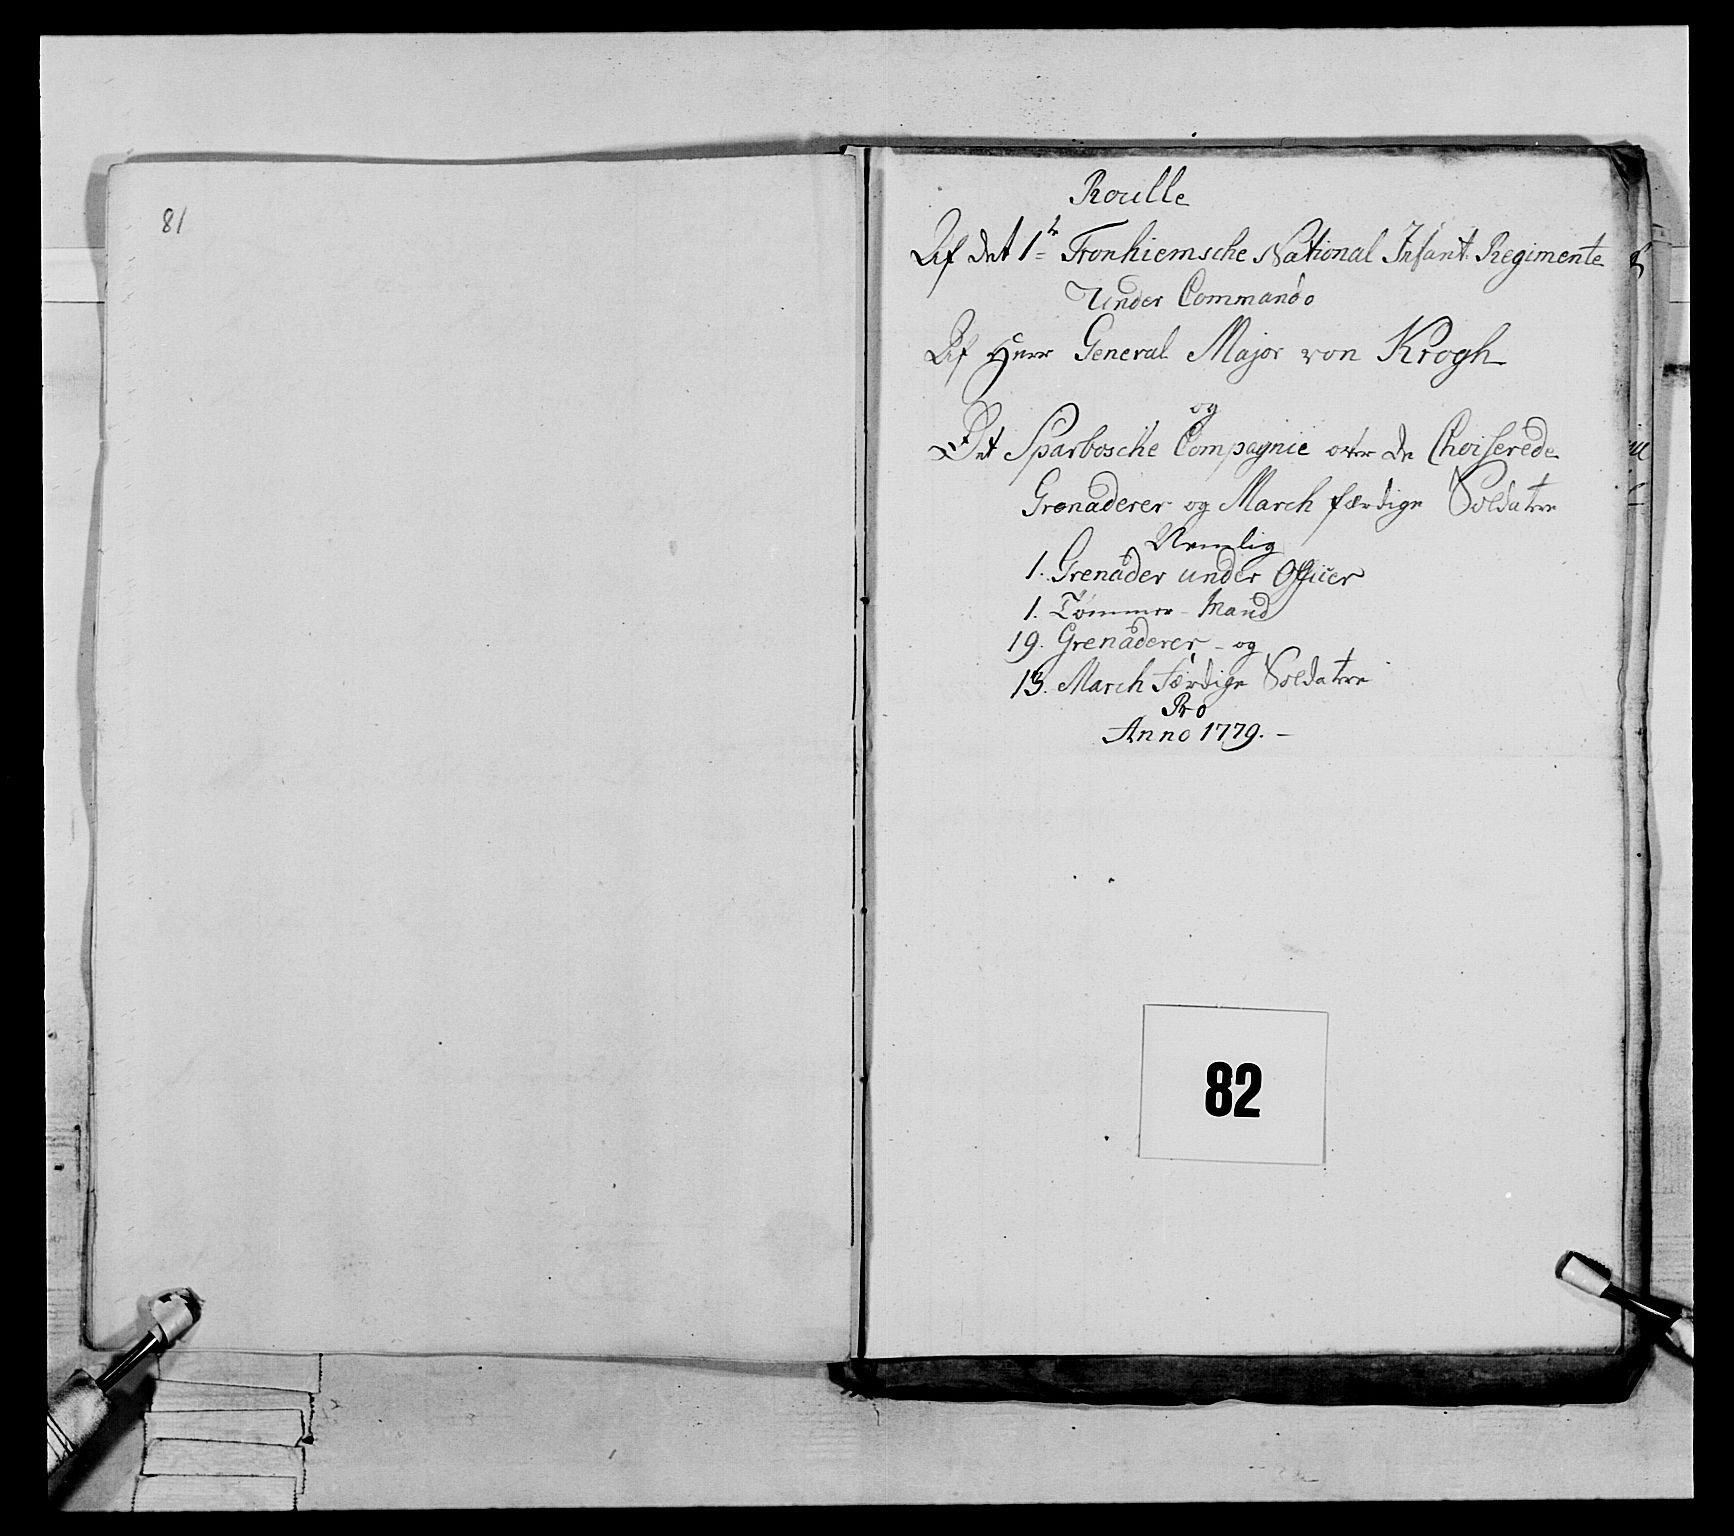 81
Roulle
Af det 1te Tronhiemsche National Infant: Regimente
Under Commando
Af Herr General Major von Krogh
og
Det Sparbosche Compagnie over de Choiserede
Grenaderer og March færdige Soldatere
Nemlig
1. Grenader under Officer
1. Tømmer-Mand
19. Grenaderer - og
March færdige Soldatere
Pro
Anno 1779. -
82